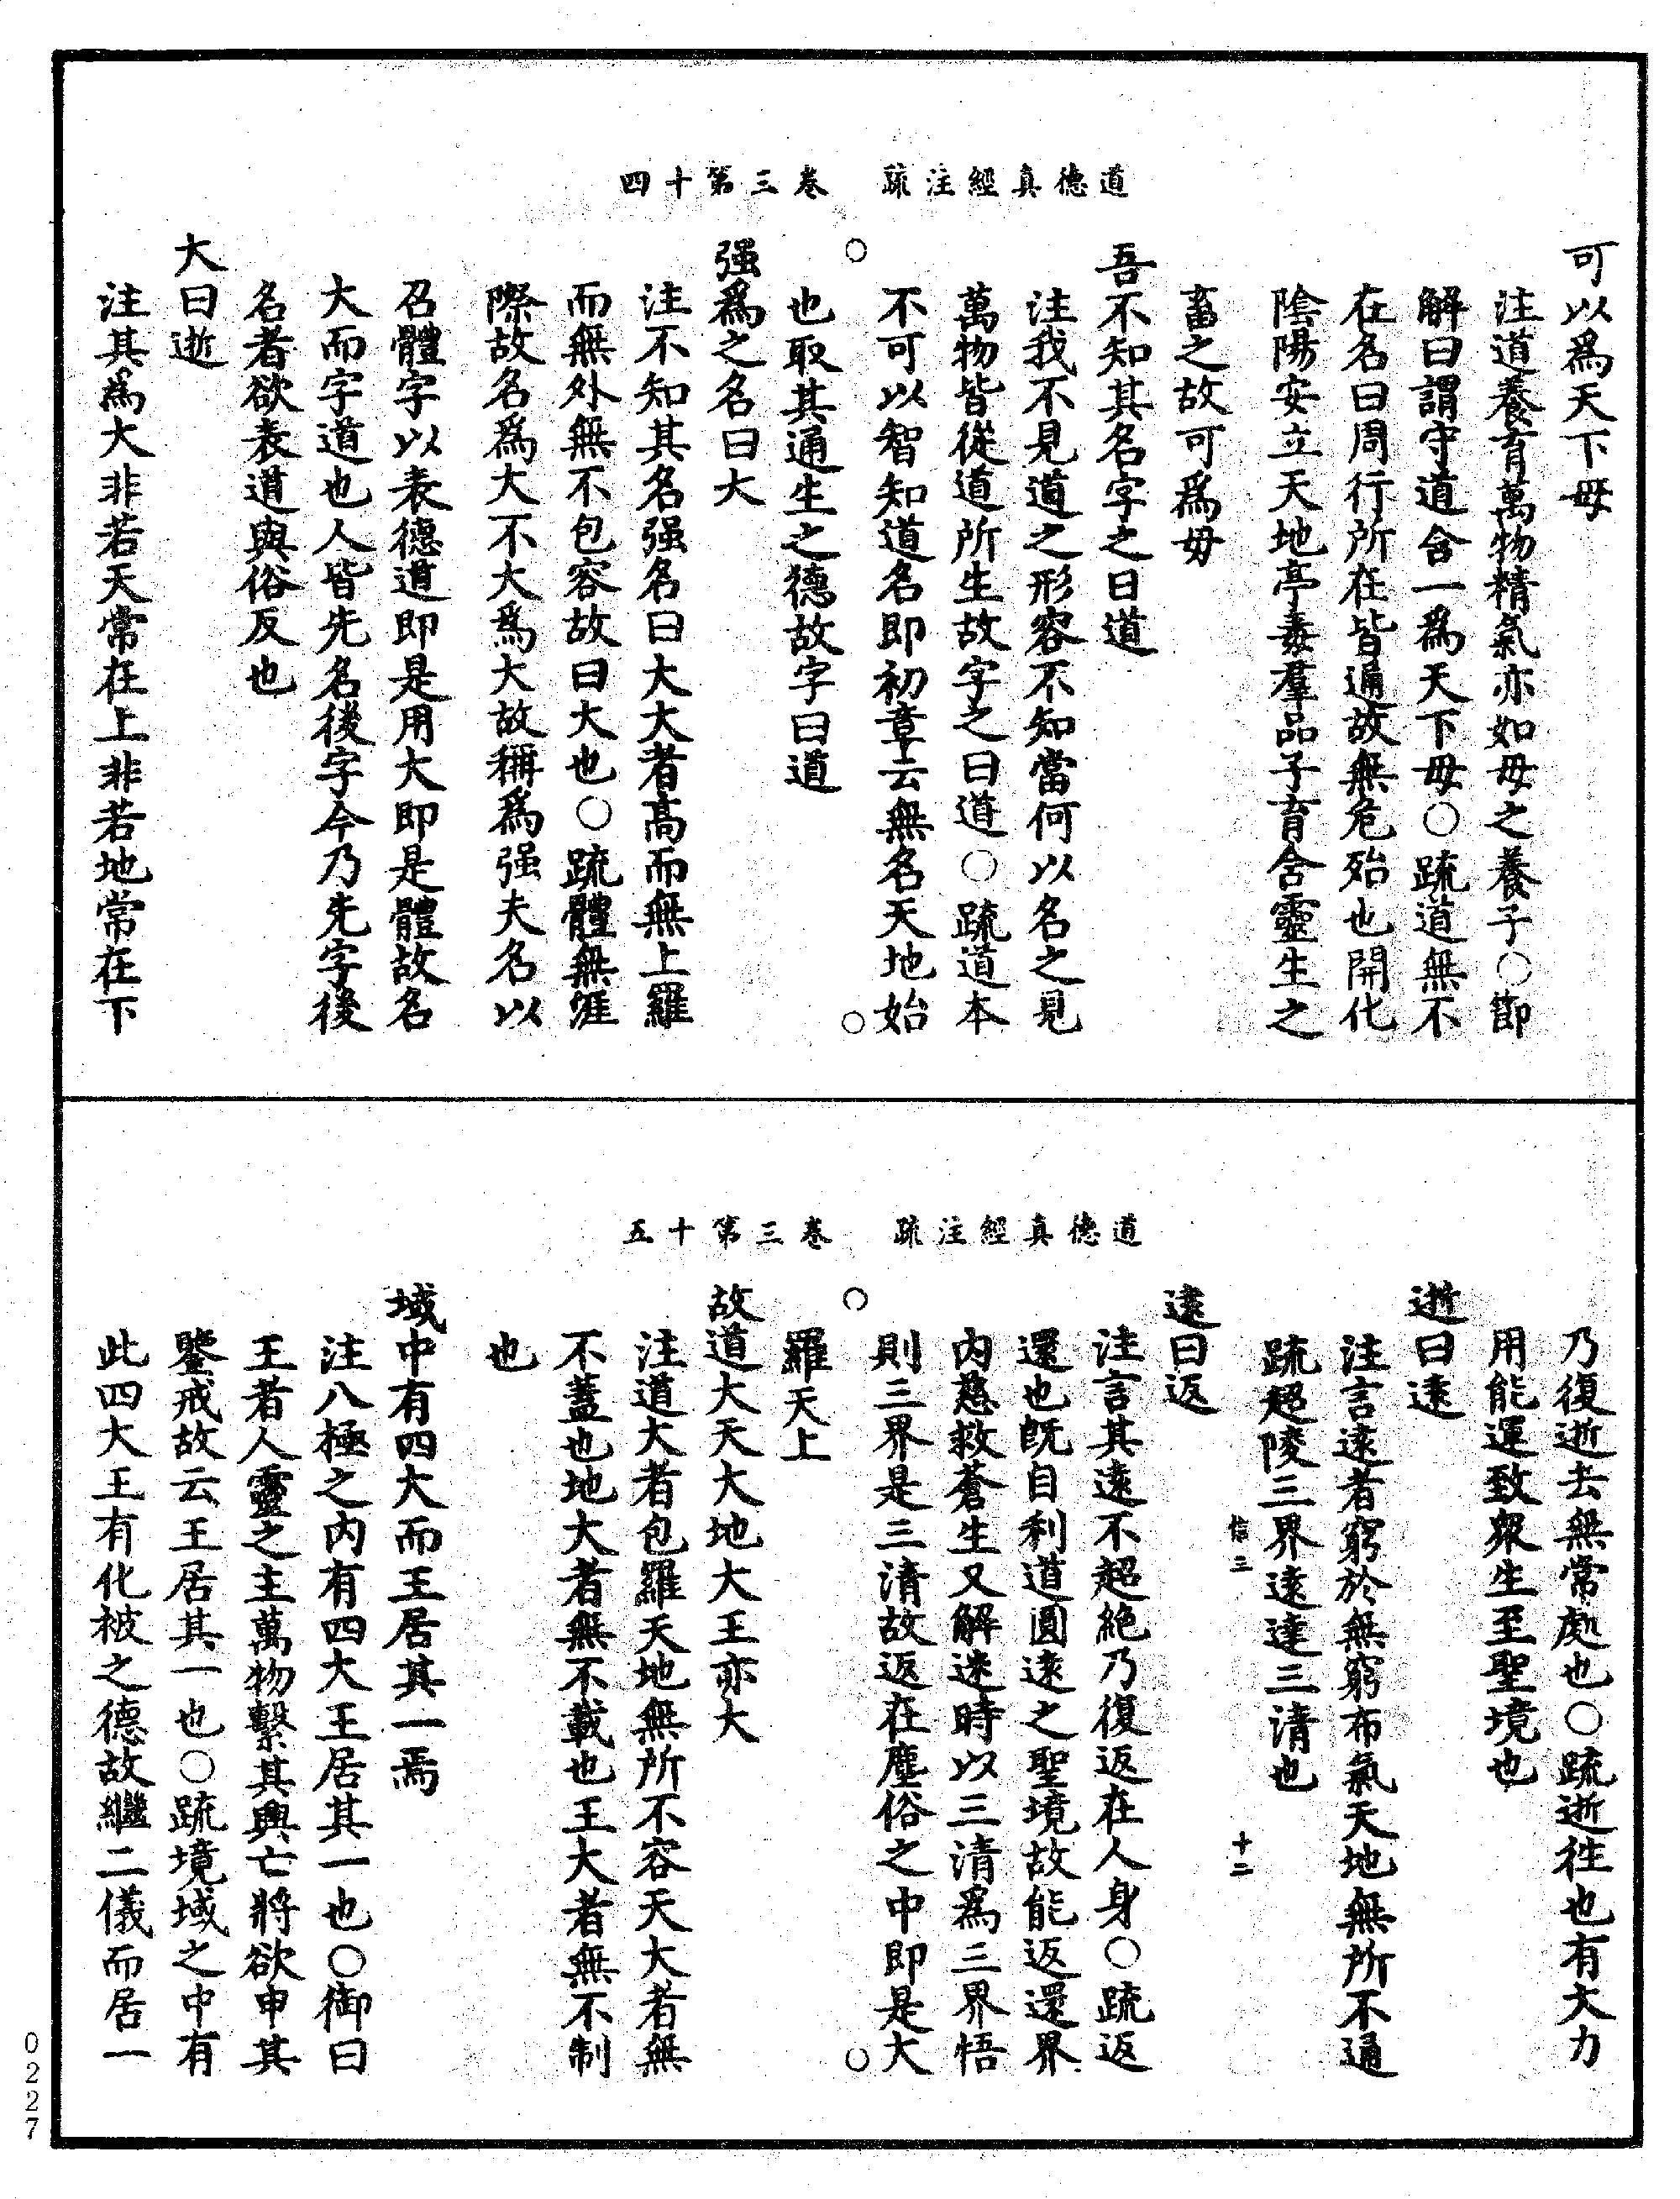 道德真經注疏　卷三第十四
可以爲天下母
注道養育萬物精氣亦如母之養子○節
解曰謂守道含一爲天下母○疏道無不
在名曰周行所在皆遍故無危殆也開化
陰陽安立天地亭毒羣品子育含靈生之
畜之故可爲母
吾不知其名字之曰道
注我不見道之形容不知當何以名之見
萬物皆從道所生故字之曰道○疏道本
不可以智知道名即初章云無名天地始
也取其通生之德故字曰道
强爲之名曰大
注不知其名强名曰大大者高而無上羅
而無外無不包容故曰大也○疏體無涯
際故名爲大不大爲大故稱爲强夫名以
召體字以表德道即是用大即是體故名
大而字道也人皆先名後字今乃先字後
名者欲表道與俗反也
大曰逝
注其爲大非若天常在上非若地常在下
道德真經注疏　卷三第十五
乃復逝去無常處也○疏逝往也有大力
用能運致衆生至聖境也
逝曰遠
注言遠者窮於無窮布氣天地無所不通
疏超陵三界遠達三清也
信三　十二
遠曰返
注言其遠不超絶乃復返在人身○疏返
還也既自利道圓遠之聖境故能返還界
内慈救蒼生又解迷時以三清爲三界悟
則三界是三清故返在塵俗之中即是大
羅天上
故道大天大地大王亦大
注道大者包羅天地無所不容天大者無
不蓋也地大者無不載也王大者無不制
也
域中有四大而王居其一焉
注八極之内有四大王居其一也○御曰
王者人靈之主萬物繫其興亡將欲申其
鑒戒故云王居其一也○疏境域之中有
此四大王有化被之德故繼二儀而居一
0227